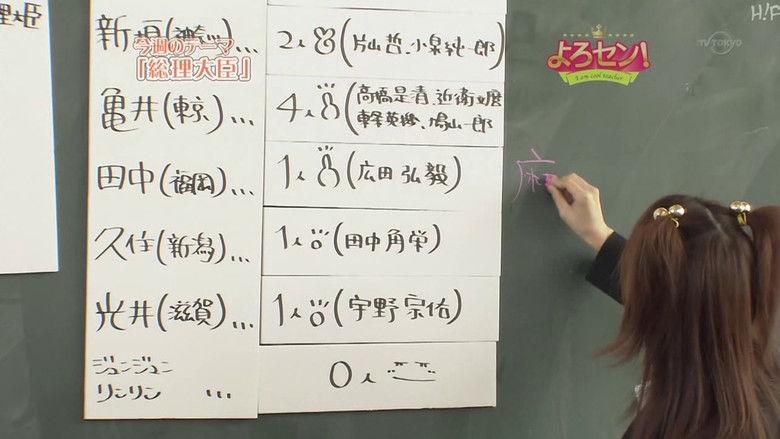 H!P
TV TOKYO
よろセン!
I am cool teacher
今週のテーマ
「総理大臣」
理大臣
新垣(神奈川)... 2人(片山 哲、小泉純一郎)
亀井(東京)... 4人(高橋是清、近衛文麿
東条英機、鳩山一郎)
田中(福岡)... 1人(広田 弘毅)
久住(新潟)... 1人(田中角栄)
光井(滋賀)... 1人(宇野宗佑)
ジュンジュン
リンリン ... 0人